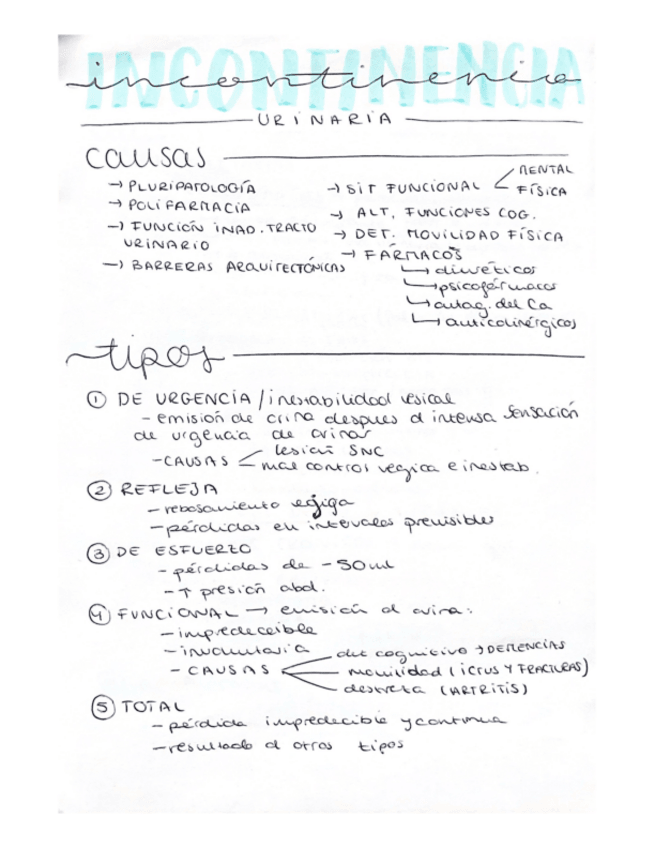 INCONTINENCIA
incontinencia
URINARIA
causas
→ PLURIPATOLOGÍA
→ POLIFARMACIA
→ FUNCIÓN INAD. TRACTO
URINARIO
→ BARRERAS ARQUITECTÓNICAS
→ SIT FUNCIONAL
MENTAL
FÍSICA
→ ALT. FUNCIONES COG.
→ DET. MOVILIDAD FÍSICA
→ FÁRMACOS
diuréticos
psicofármacos
antag. del Ca
anticolinérgicos
tipos
① DE URGENCIA / inestabilidad vesical
- emisión de orina despues d intensa sensación
de urgencia de orinar
- CAUSAS
lesión SNC
mal control vegica e inestab.
② REFLEJA
- rebosamiento vegiga
- pérdidas en intervalos previsibles
③ DE ESFUERZO
- pérdidas de - 50 ml
- ↑ presión abd.
④ FUNCIONAL → emisión d orina:
- impredecible
- involuntaria
- CAUSAS
det cognitivo → DEMENCIAS
movilidad (ICTUS Y FRACTURAS)
destreza (ARTRITIS)
⑤ TOTAL
- pérdida impredecible y continua
- resultado d otros tipos